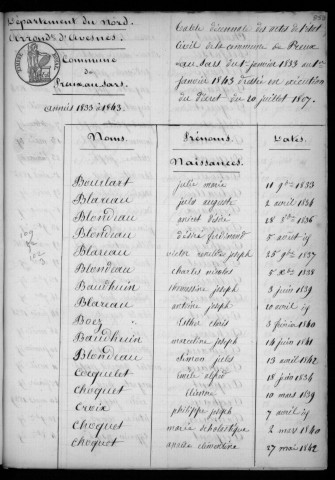 Département du Nord.
Arrond.t d'Avesnes.
Commune
de
Preux au Sart.
années 1833 à 1843.
Table décennale des actes de l'état
Civil de la commune de Preux
au Sart du 1er janvier 1833 au 1er
janvier 1843 dressée en exécution
du Décret du 20 juillet 1807.
Noms. Prénoms. Dates.
Naissances.
Boulart julie marie 11 9bre 1833
Blareau jules auguste 2 avril 1834
Blondeau désiré 28 1836
Blondeau désiré ferdinand 5 août id
Blareau victor joseph 25 9bre 1837
Blondeau charles nicolas 5 Xbre 1838
Baudhuin joseph 3 juin 1839
Blareau antoine joseph 20 avril id
Boez Esther 3 février 1840
Baudhuin marceline joseph 14 juin 1841
Blondeau simeon jules 13 avril 1842
Cocquelet emile alfred 18 juin 1834
Choquet éliénne 10 mars 1839
Croix philippe joseph 7 avril id
Choquet marie scholastique 2 mars 1840
Choquet amélie clémentine 27 mai 1842